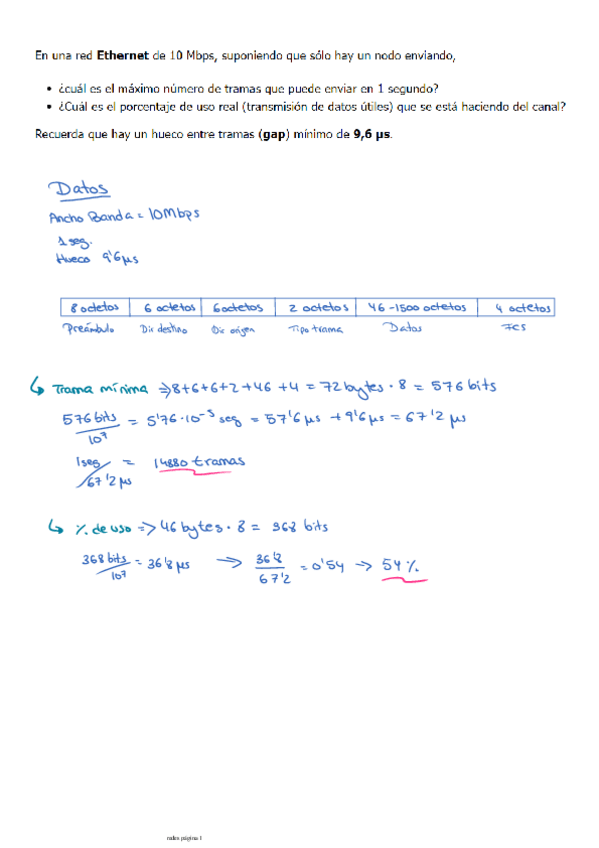 En una red Ethernet de 10 Mbps, suponiendo que sólo hay un nodo enviando,
• ¿cuál es el máximo número de tramas que puede enviar en 1 segundo?
• ¿Cuál es el porcentaje de uso real (transmisión de datos útiles) que se está haciendo del canal?
Recuerda que hay un hueco entre tramas (gap) mínimo de 9,6 µs.
Datos
Ancho Banda = 10Mbps
1 seg.
Hueco 9'6 µs
8 octetos 6 octetos 6 octetos 2 octetos 46-1500 octetos 4 octetos
Preámbulo Dir destino Dir origen Tipo trama Datos FCS
↳ Trama mínima => 8+6+6+2+46+4 = 72 bytes · 8 = 576 bits
576 bits / 10⁷ = 5'76·10⁻⁵ seg = 57'6 µs + 9'6 µs = 67'2 µs
1 seg / 67'2 µs = 14880 tramas
↳ % de uso => 46 bytes · 8 = 368 bits
368 bits / 10⁷ = 36'8 µs → 36'8 / 67'2 = 0'54 → 54%
redes página 1